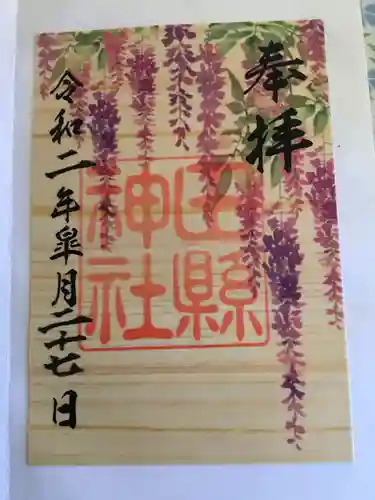 奉拝
田縣
神社
令和二年皐月二十七日